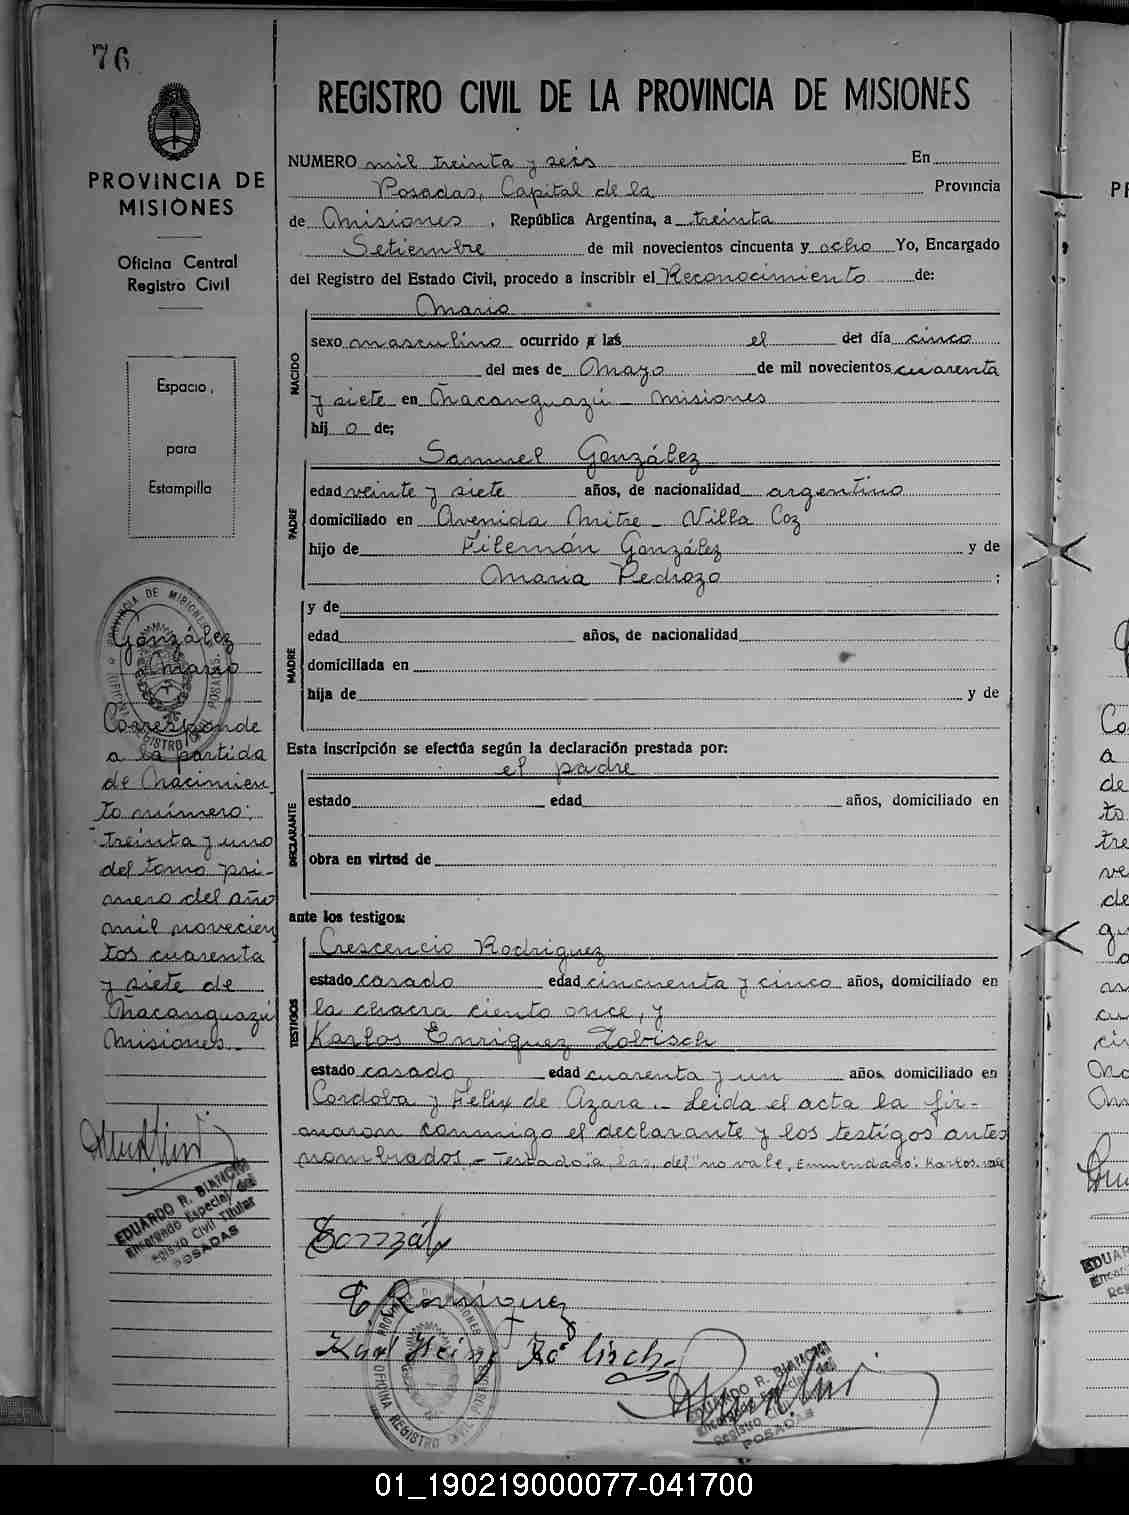 76
PROVINCIA DE
MISIONES
Oficina Central
Registro Civil
Espacio
para
Estampilla
González
Mario
Corresponde
a la partida
de Nacimien
to número:
treinta y uno
del tomo pri-
mero del año
mil novecien
tos cuarenta
y siete de
Ñacanguazú
Misiones.-
EDUARDO R. BIANCHI
Encargado Especial del
Registro Civil Titular
POSADAS
REGISTRO CIVIL DE LA PROVINCIA DE MISIONES
NUMERO mil treinta y seis En
Posadas, Capital de la Provincia
de Misiones, República Argentina, a treinta
Setiembre de mil novecientos cincuenta y ocho Yo, Encargado
del Registro del Estado Civil, procedo a inscribir el Reconocimiento de:
NACIDO
Mario
sexo masculino ocurrido a las el del día cinco
del mes de Mayo de mil novecientos cuarenta
y siete en Ñacanguazú - Misiones
hij o de;
PADRE
Samuel González
edad veinte y siete años, de nacionalidad argentino
domiciliado en Avenida Mitre - Villa Coz
hijo de Filemón González y de
Maria Pedrozo ;
MADRE
y de
edad años, de nacionalidad
domiciliada en
hija de y de
Esta inscripción se efectúa según la declaración prestada por:
DECLARANTE
el padre
estado edad años, domiciliado en
obra en virtud de
ante los testigos:
TESTIGOS
Crescencio Rodriguez
estado casado edad cincuenta y cinco años, domiciliado en
la chacra ciento once, y
Karlos Enriquez Zobisch
estado casado edad cuarenta y un años, domiciliado en
Cordoba y Felix de Azara.- Leida el acta la fir-
maron conmigo el declarante y los testigos antes
nombrados.- Testado: "a, las, del" no vale, Enmendado: Karlos. vale
González
C. Rodriguez
Karl Heinz
EDUARDO R. BIANCHI
Encargado Especial del
Registro Civil Titular
POSADAS
01_190219000077-041700